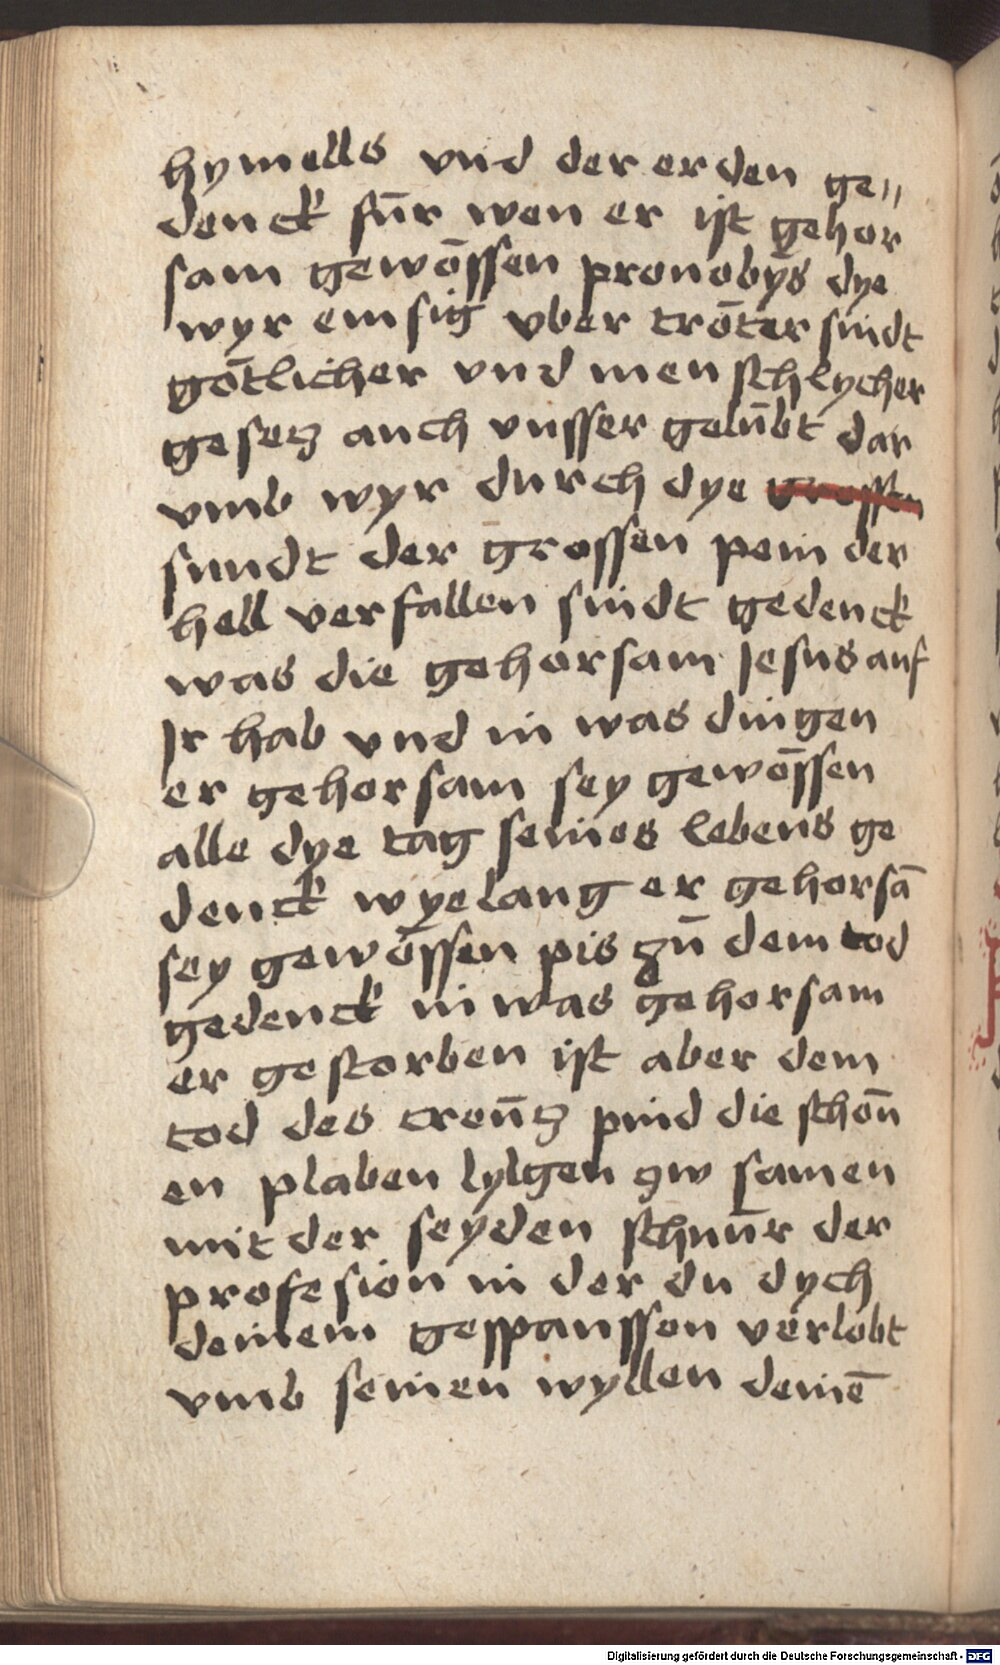 hymells vnd der erden ge〃
denck fūr wen er ist gehor
sam gewōssen pronobys dye
wyr emsig vber trōter sindt
gōtlicher vnd menschlycher
gesetz auch vnsser gelūbt dar
vmb wyr durch dye
sundt der grossen pein der
hell verfallen sindt gedenck
was die gehorsam Jesus auf
Jr hab vnd in was dingen
er gehorsam sey gewōssen
alle dye tag seines lebens ge
denck wye lang er gehorsā
sey gewōssen pis zū dem tod
gedenck in was gehorsam
er gestorben ist aber dem
tod des creūtz pind die schōn
en plaben lylgen zw samen
mit der seyden schnūr der
profesion in der du dych
deinem gesspanssen verlobt
vmb seinen wyllen deinē
Digitalisierung gefördert durch die Deutsche Forschungsgemeinschaft - DFG